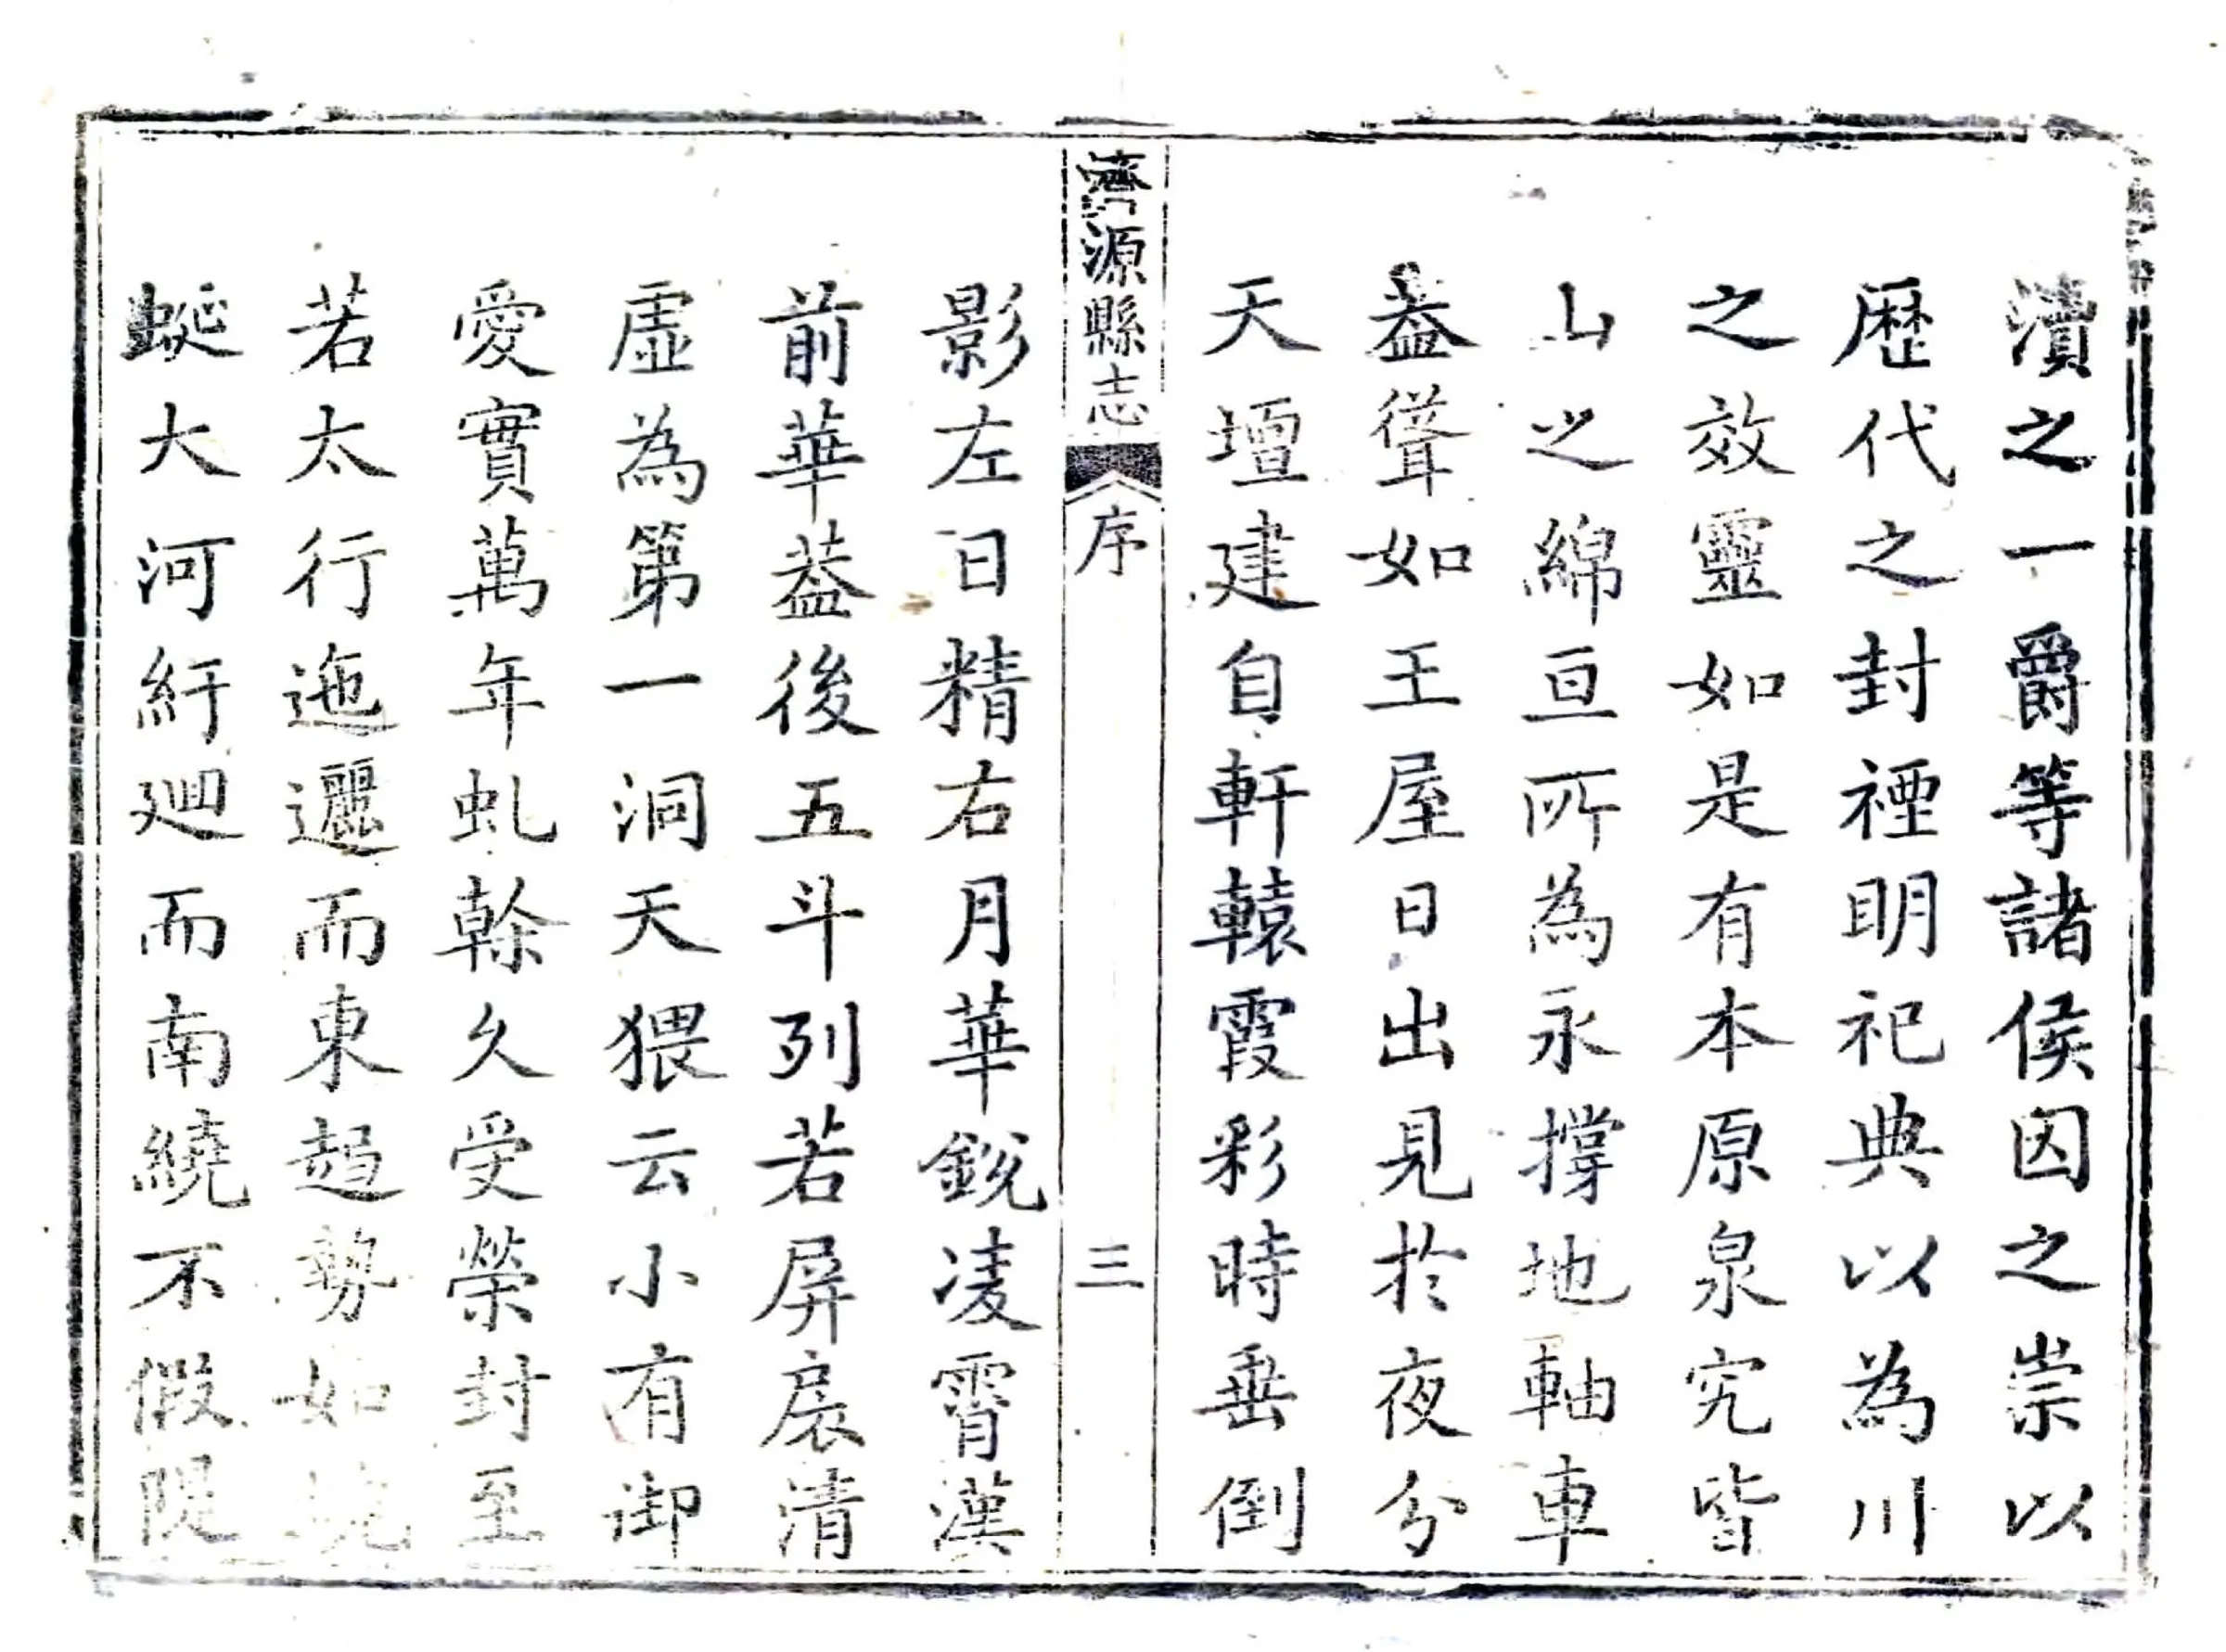 瀆之一爵等諸侯因之崇以
歴代之封禋明祀典以為川
之效靈如是有本原泉究皆
山之綿亘所為永撐地軸車
葢聳如王屋日出見於夜分
天壇建自軒轅霞彩時垂倒
濟源縣志
序
三
影左日精右月華銳凌霄漢
前華葢後五斗列若屏扆清
虛為第一洞天猥云小有御
愛實萬年虬幹久受榮封至
若太行迤邐而東趨勢如
蜒大河紆廻而南繞不假隄